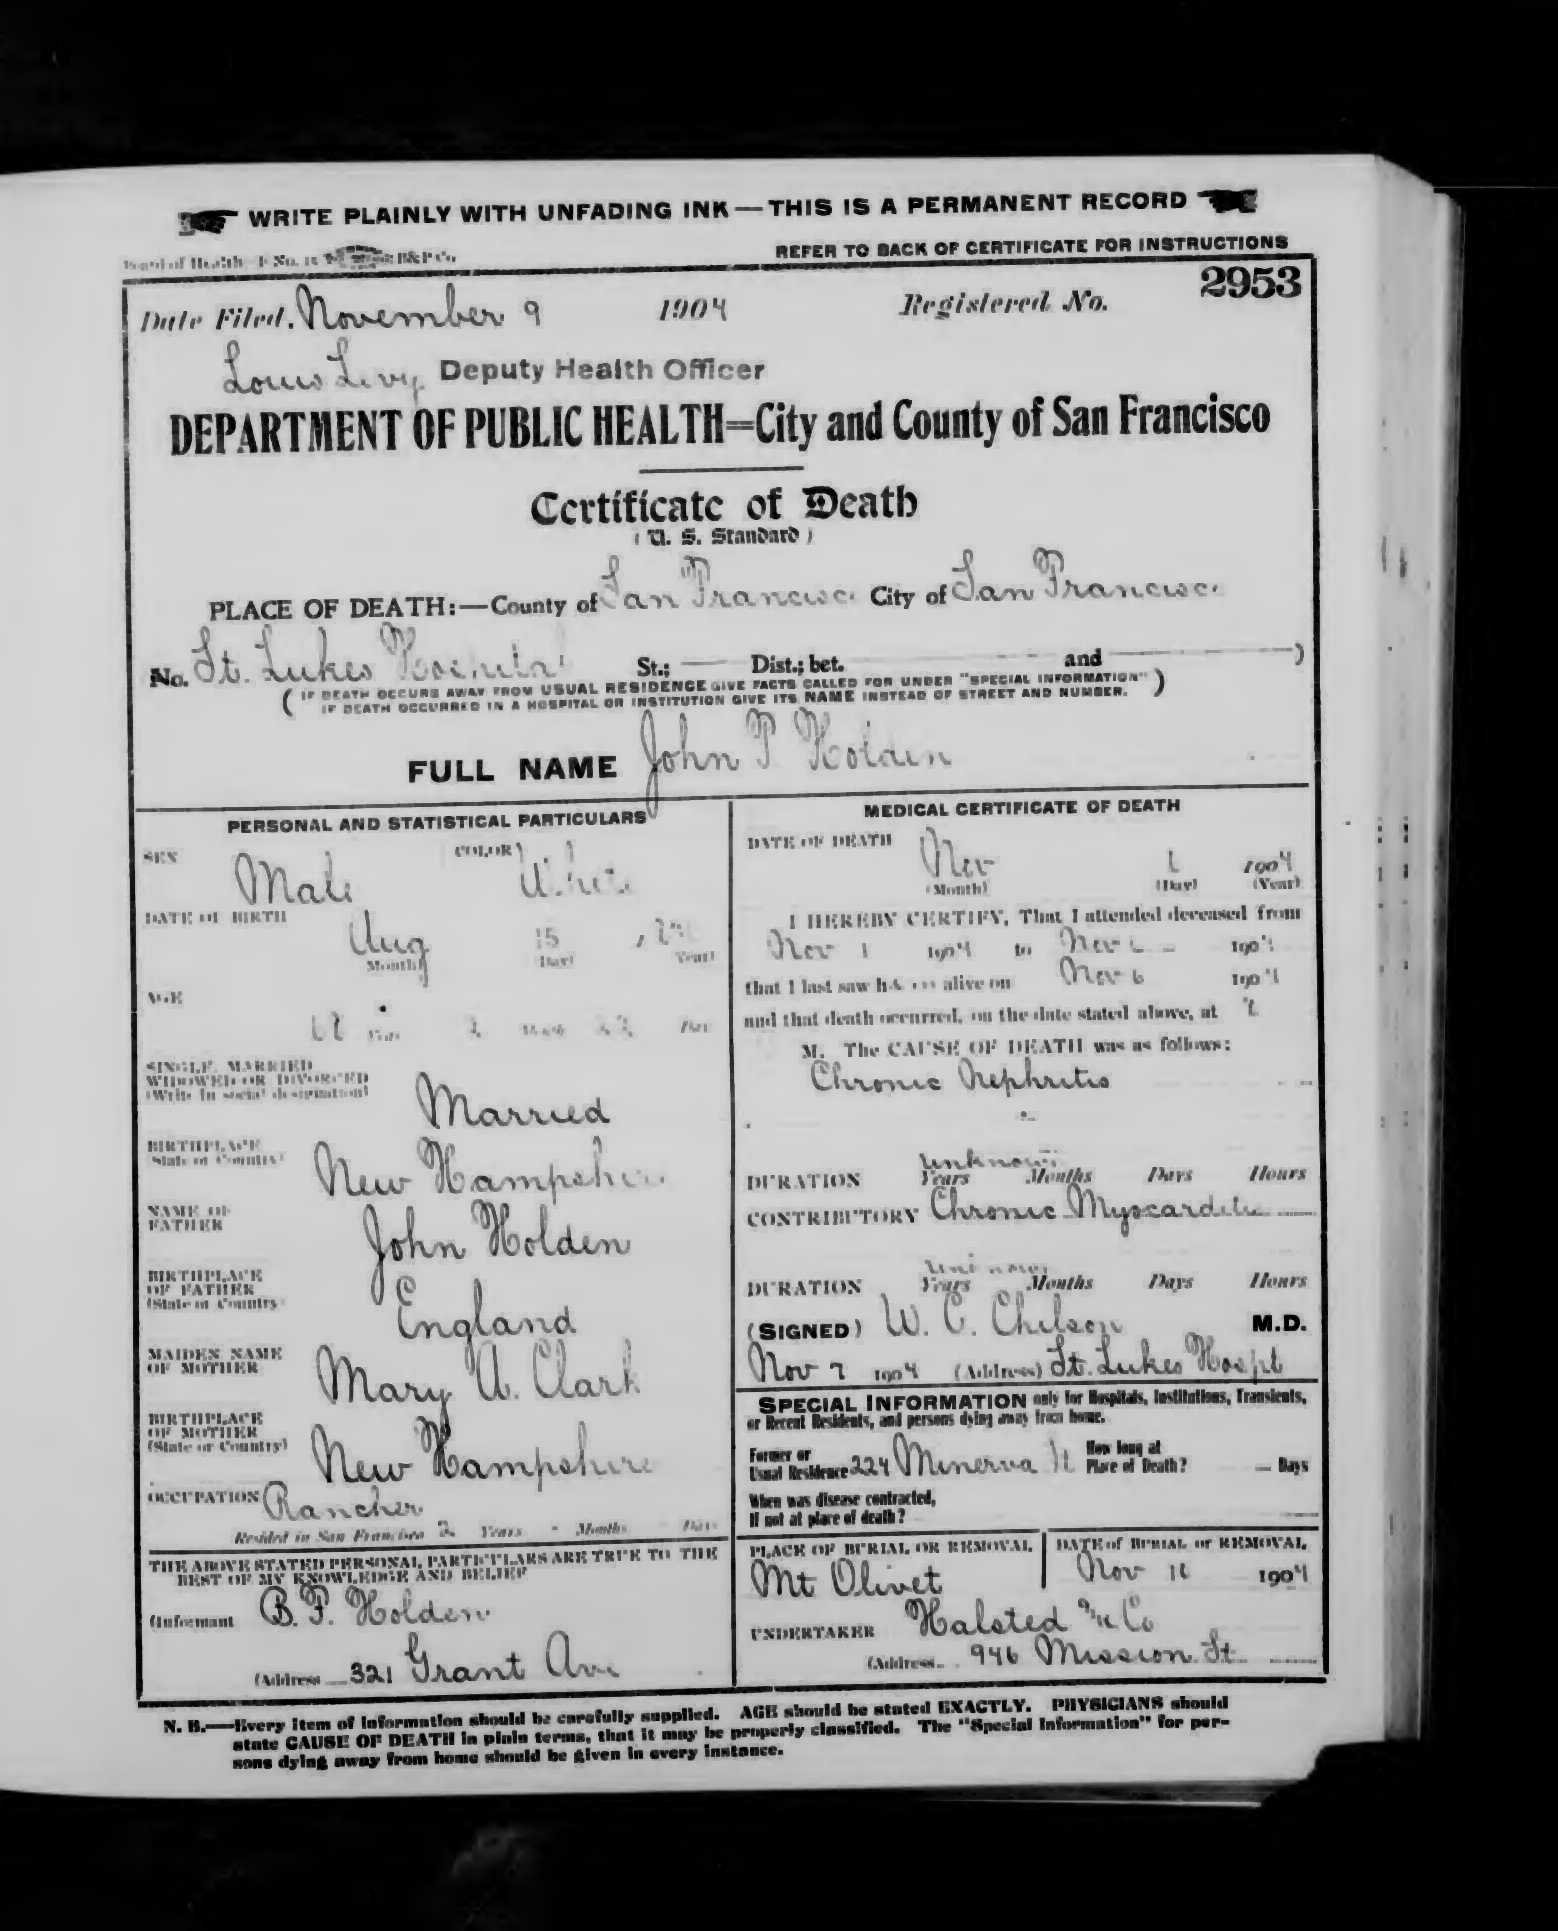 WRITE PLAINLY WITH UNFADING INK—THIS IS A PERMANENT RECORD
Board of Health—F No. B&P Co.
REFER TO BACK OF CERTIFICATE FOR INSTRUCTIONS
Date Filed. November 9 1904 Registered No. 2953
Louis Levy Deputy Health Officer
DEPARTMENT OF PUBLIC HEALTH=City and County of San Francisco
Certificate of Death
(U. S. Standard)
PLACE OF DEATH:—County of San Francisco City of San Francisco
No. St. Lukes Hospital St.; Dist.; bet. and )
( IF DEATH OCCURS AWAY FROM USUAL RESIDENCE GIVE FACTS CALLED FOR UNDER "SPECIAL INFORMATION" )
IF DEATH OCCURRED IN A HOSPITAL OR INSTITUTION GIVE ITS NAME INSTEAD OF STREET AND NUMBER.
FULL NAME John P Holden
PERSONAL AND STATISTICAL PARTICULARS
SEX Male COLOR White
DATE OF BIRTH Aug 15
(Month) (Day) (Year)
AGE Years 2 Months 22 Days
SINGLE, MARRIED
WIDOWED OR DIVORCED
(Write in social designation) Married
BIRTHPLACE
(State or Country) New Hampshire
NAME OF
FATHER John Holden
BIRTHPLACE
OF FATHER
(State or Country) England
MAIDEN NAME
OF MOTHER Mary A. Clark
BIRTHPLACE
OF MOTHER
(State or Country) New Hampshire
OCCUPATION Rancher
Resided in San Francisco 2 Years - Months Days
THE ABOVE STATED PERSONAL PARTICULARS ARE TRUE TO THE
BEST OF MY KNOWLEDGE AND BELIEF
(Informant B. F. Holden
(Address 321 Grant Ave
MEDICAL CERTIFICATE OF DEATH
DATE OF DEATH Nov 6 1904
(Month) (Day) (Year)
I HEREBY CERTIFY, That I attended deceased from
Nov 1 1904 to Nov 6 1904
that I last saw him alive on Nov 6 1904
and that death occurred, on the date stated above, at
M. The CAUSE OF DEATH was as follows:
Chronic Nephritis
unknown
DURATION Years Months Days Hours
CONTRIBUTORY Chronic Myocarditis
unknown
DURATION Years Months Days Hours
(SIGNED) W. C. Chilson M.D.
Nov 7 1904 (Address) St. Lukes Hospt
SPECIAL INFORMATION only for Hospitals, Institutions, Transients,
or Recent Residents, and persons dying away from home.
Former or
Usual Residence 224 Minerva St How long at
Place of Death? — Days
When was disease contracted,
If not at place of death?
PLACE OF BURIAL OR REMOVAL Mt Olivet
DATE of BURIAL or REMOVAL Nov 1904
UNDERTAKER Halsted & Co
(Address 946 Mission St
N. B.—Every item of information should be carefully supplied. AGE should be stated EXACTLY. PHYSICIANS should
state CAUSE OF DEATH in plain terms, that it may be properly classified. The "Special Information" for per-
sons dying away from home should be given in every instance.